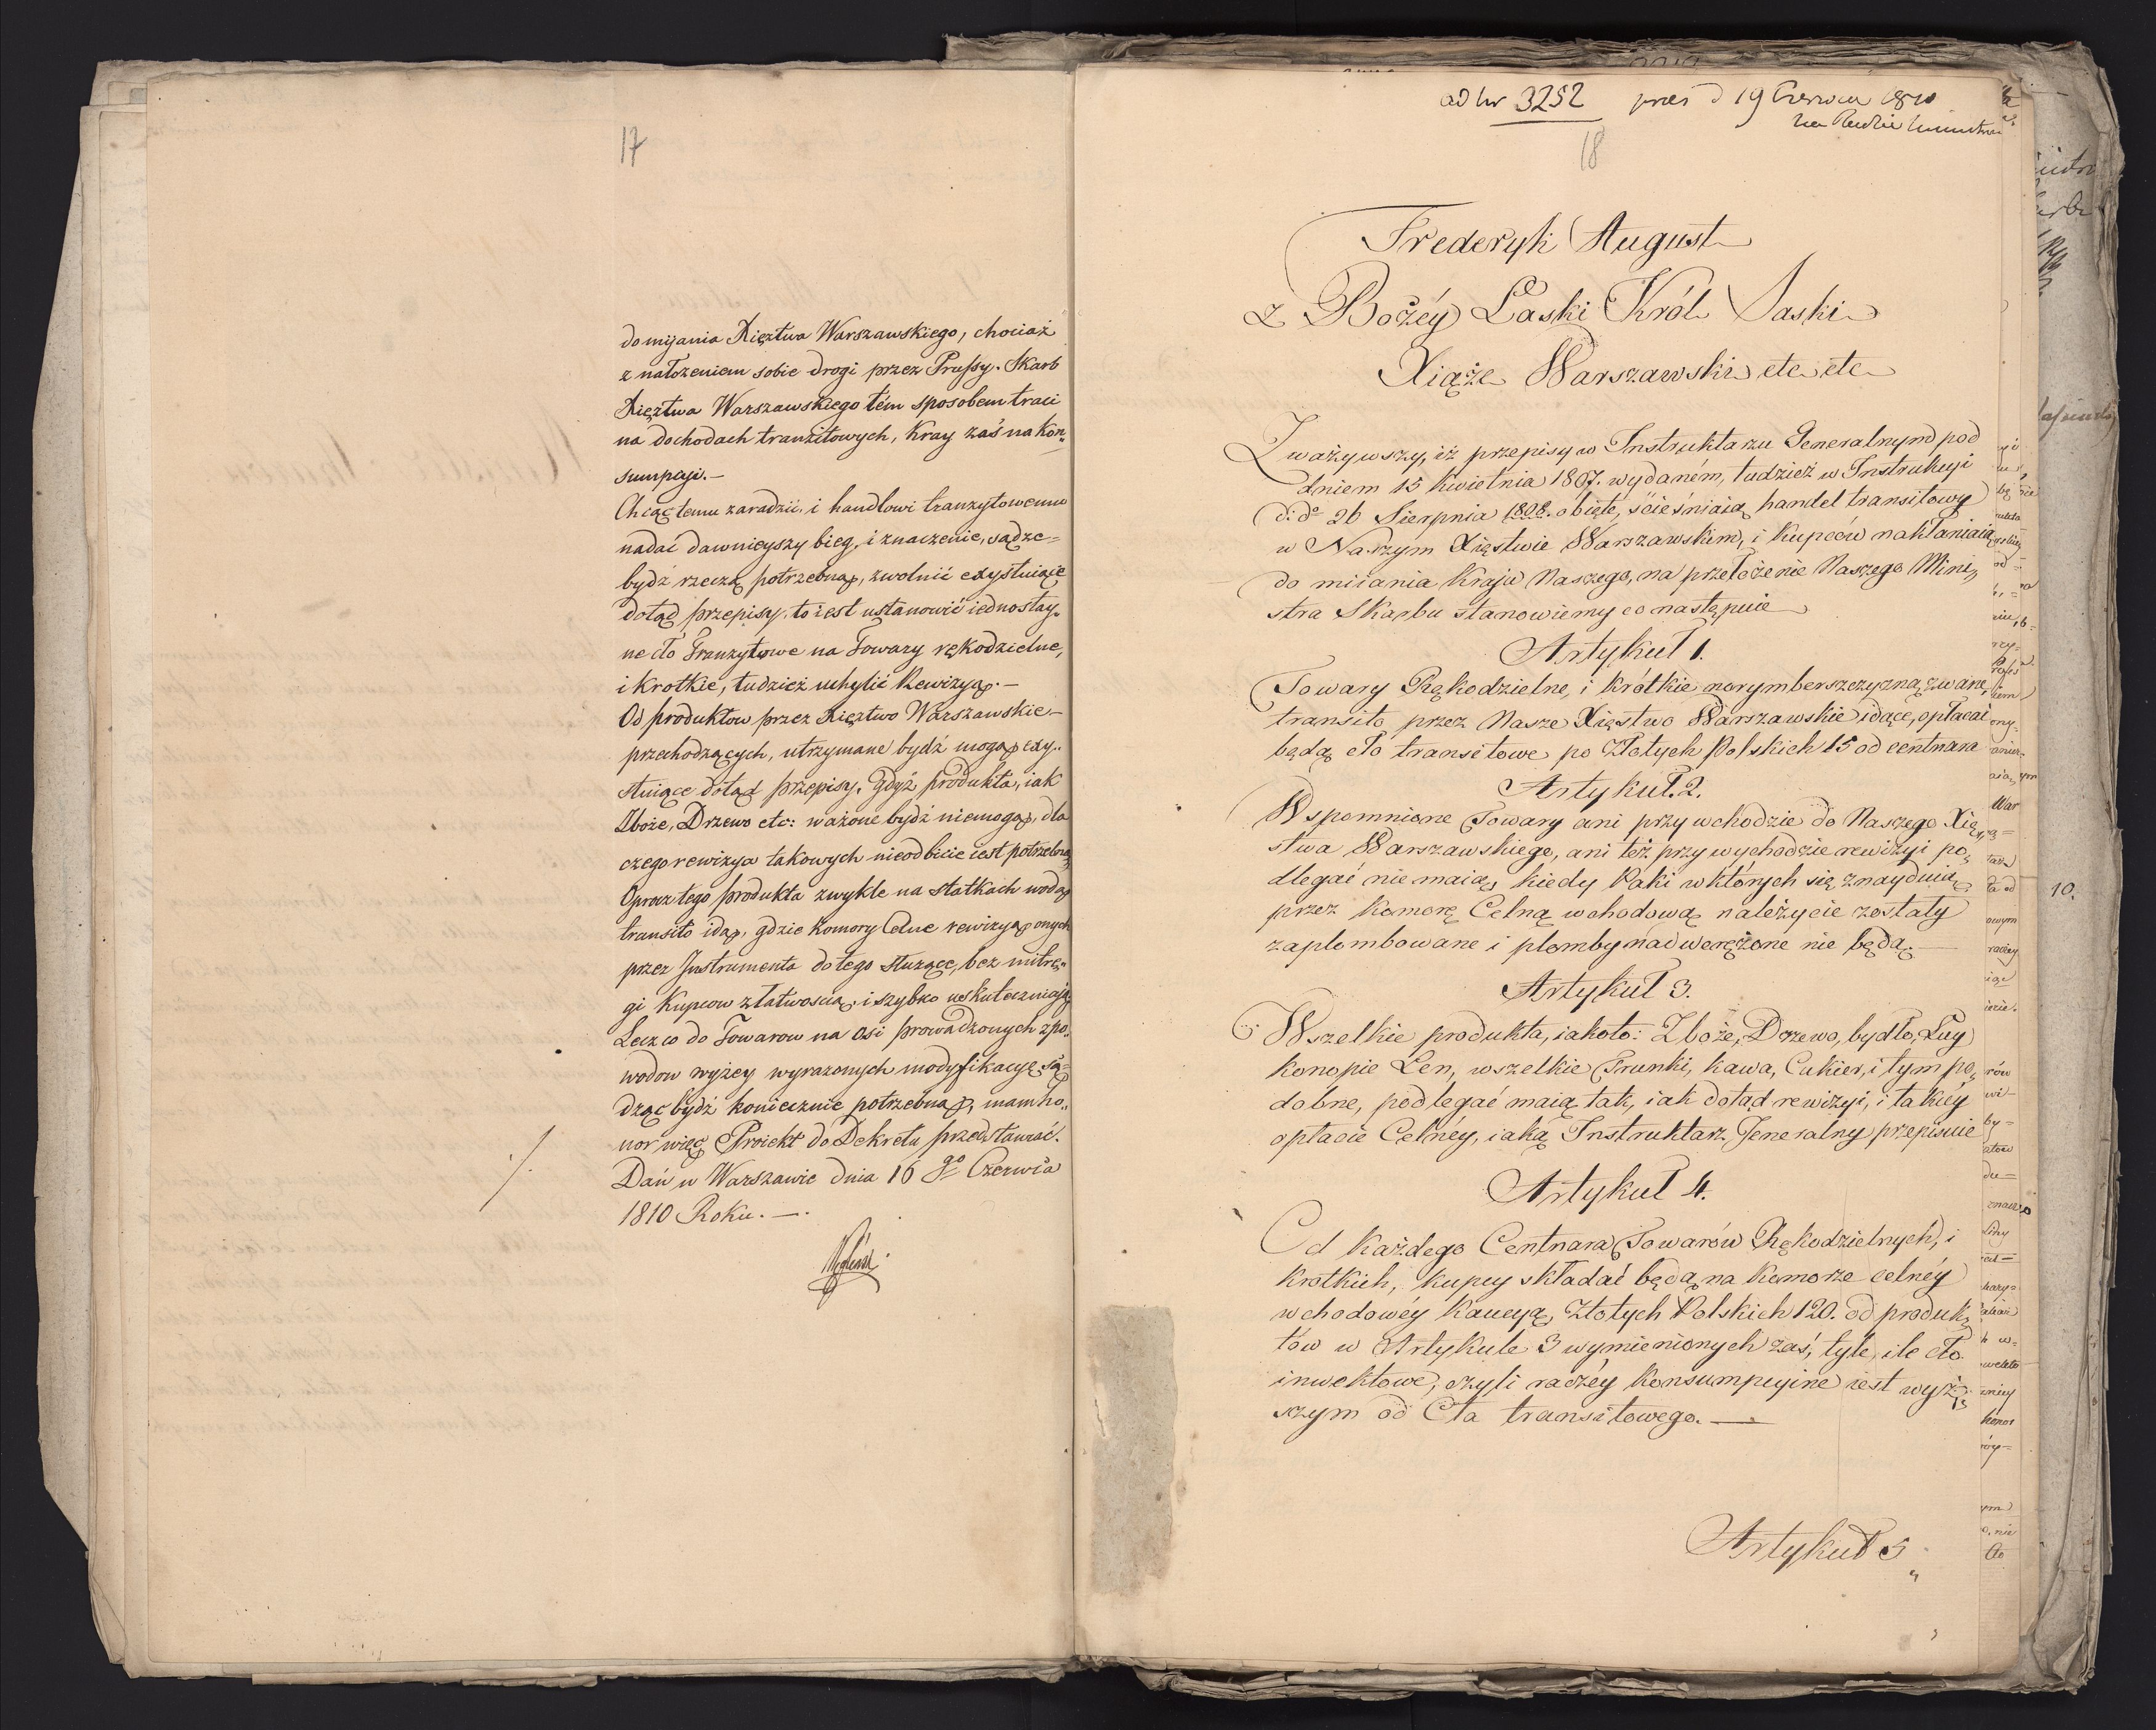 17
do mijania Xięztwa Warszawskiego, chociaż
z nałożeniem sobie drogi przez Prussy. Skarb
Xięztwa Warszawskiego tém sposobem traci
na dochodach tranzitowych, Kray zaś na kon„
sumpcyi.—
Chcąc temu zaradzić, i handlowi tranzytowemu
nadać dawnieyszy bieg, i znaczenie, sądzę=
bydź rzeczą potrzebną, zwolnić exystuiące
dotąd przepisy, to iest ustanowić iednostay„
ne cło Tranzytowe na Towary rękodzielne,
i krotkie, tudzież uchylić Rewizyą.—
Od produktow przez Xięztwo Warszawskie—
przechodzących, utrzymane bydź mogą exy„
stuiące dotąd przepisy. Gdyż produkta, iak
Zboże, Drzewo etc: ważone bydź niemogą, dla
czego rewizya takowych nieodbicie iest potrzebną
Oprocz tego produkta zwykle na statkach wodą
transito idą, gdzie Komory Celne rewizyą onych
przez Instrumenta do tego służące, bez mitrę„
gi Kupcow z łatwoscią i szybko uskuteczniają
Lecz co do Towarow na osi prowadzonych z po„
wodow wyżey wyrazonych modyfikacyę są=
dząc bydź koniecznie potrzebną, mam ho„
nor więc Proiekt do Dekretu przedstawić.
Dań w Warszawie dnia 16 go Czerwca
1810 Roku.—.
ad Nr 3252 prez d 19 Czerwca 1810
18
Frederyk August
z Bożéy Łaski Król Saski
Xiąże Warszawski etc etc
Zważywszy, iż przepisy w Instruktarzu Generalnym pod
dniem 15 Kwietnia 1807. wydaném, tudzież w Instrukcyi
d: do 26 Sierpnia 1808. obięte, ścieśniaią handel transitowy
w Naszym Xięstwie Warszawskim, i kupców nakłaniaią
do miiania Kraju Naszego, na przełożenie Naszego Mini„
stra Skarbu stanowiemy co następuie
Artykuł 1.
Towary Rękodzielne, i krótkie norymberszczyzną zwane,
transito przez Nasze Xięstwo Warszawskie idące, opłacać
będą cło transitowe po Złotych Polskich 15 od centnara
Artykuł. 2.
Wspomnione Towary ani przy wchodzie do Naszego Xię„
stwa Warszawskiego, ani też przy wychodzie rewizyi po„
dlegać nie maią, kiedy Paki w których się znayduią
przez Komorę Celną wchodową należycie zostały
zaplombowane i plomby nadwerężone nie będą.—
Artykuł 3.
Wszelkie produkta, iakoto: Zboże, Drzewo, bydło, Łuy
konopie Len, wszelkie Trunki, kawa, Cukier, i tym po„
dobne, podlegać maią tak, iak dotąd rewizyi, i takiéy
opłacie Celnéy, iaką Instruktarz Jeneralny przepisuie
Artykuł 4.
Od Każdego Centnara Towarów Rękodzielnych, i
Krotkich, kupcy składać będą na Komorze celnéy
wchodowéy Kaucyą, Złotych Polskich 120. od produk„
tów w Artykule 3 wymienionych zaś, tyle, ile cło
inwektowe, czyli raczéy Konsumpcyine iest wyż„
szym od Cła transitowego.—
Artykuł 5
10.